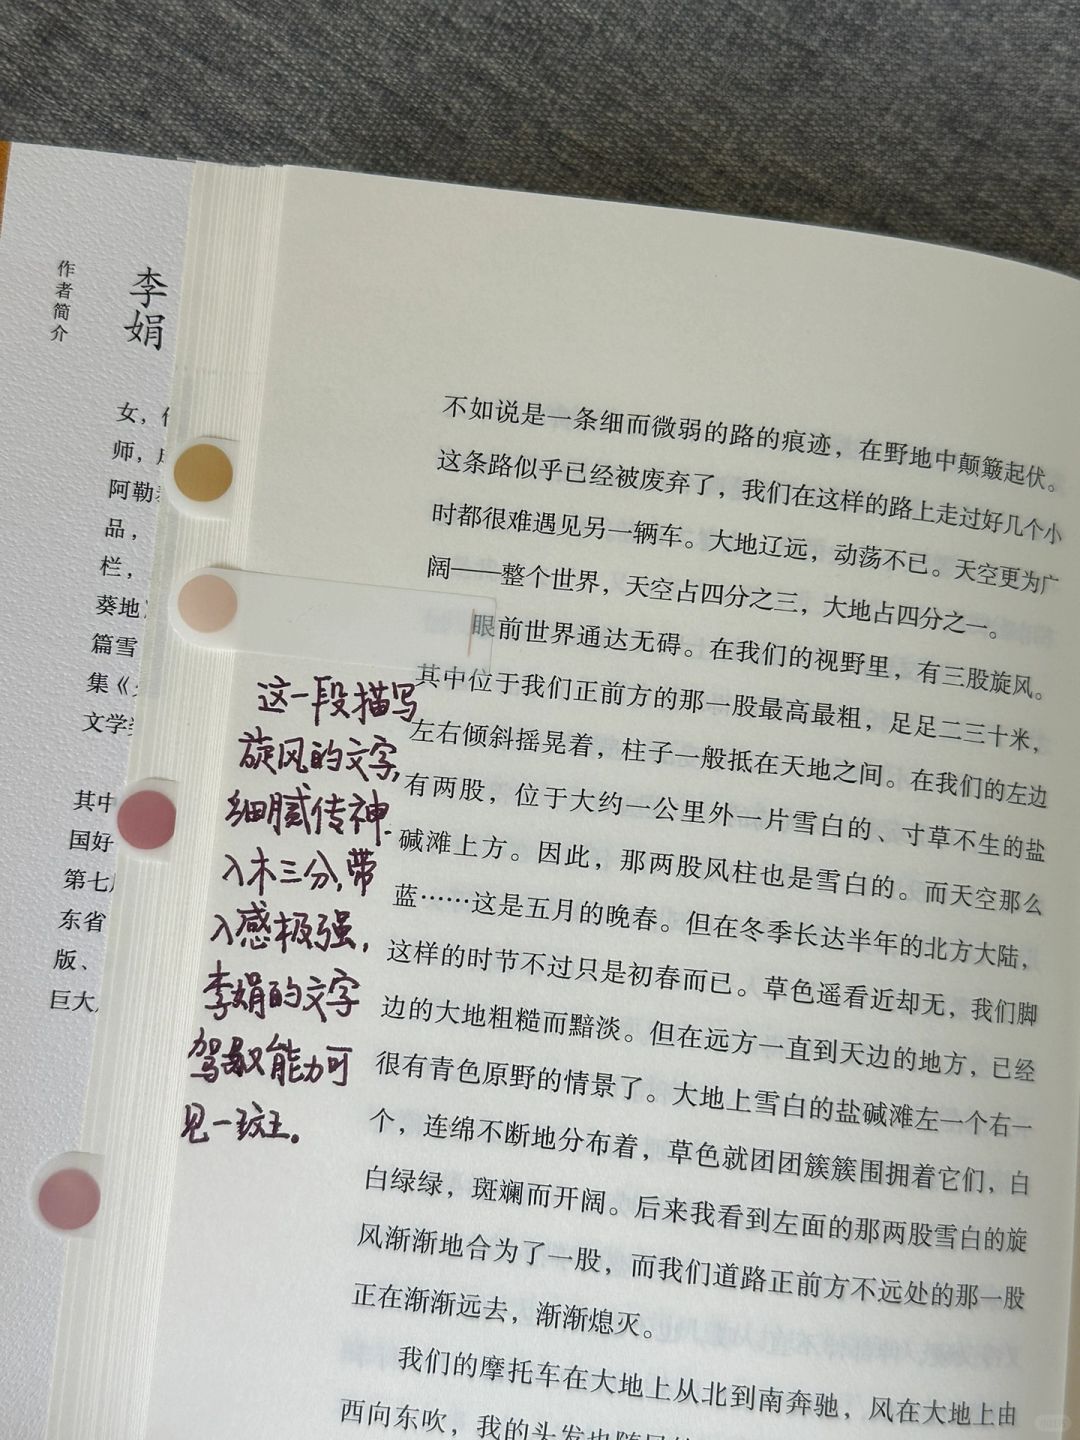 作者简介
李娟
女，
师，
阿勒
品，
栏，
葵地
篇雪
集《
文学
其中
国好
第七
东省
版、
巨大
不如说是一条细而微弱的路的痕迹，在野地中颠簸起伏。
这条路似乎已经被废弃了，我们在这样的路上走过好几个小
时都很难遇见另一辆车。大地辽远，动荡不已。天空更为广
阔——整个世界，天空占四分之三，大地占四分之一。
眼前世界通达无碍。在我们的视野里，有三股旋风。
其中位于我们正前方的那一股最高最粗，足足二三十米，
左右倾斜摇晃着，柱子一般抵在天地之间。在我们的左边
有两股，位于大约一公里外一片雪白的、寸草不生的盐
碱滩上方。因此，那两股风柱也是雪白的。而天空那么
蓝……这是五月的晚春。但在冬季长达半年的北方大陆，
这样的时节不过只是初春而已。草色遥看近却无，我们脚
边的大地粗糙而黯淡。但在远方一直到天边的地方，已经
很有青色原野的情景了。大地上雪白的盐碱滩左一个右一
个，连绵不断地分布着，草色就团团簇簇围拥着它们，白
白绿绿，斑斓而开阔。后来我看到左面的那两股雪白的旋
风渐渐地合为了一股，而我们道路正前方不远处的那一股
正在渐渐远去，渐渐熄灭。
我们的摩托车在大地上从北到南奔驰，风在大地上由
西向东吹，我的头发也随
这一段描写
旋风的文字，
细腻传神.
入木三分，带
入感极强，
李娟的文字
驾驭能力可
见一斑。